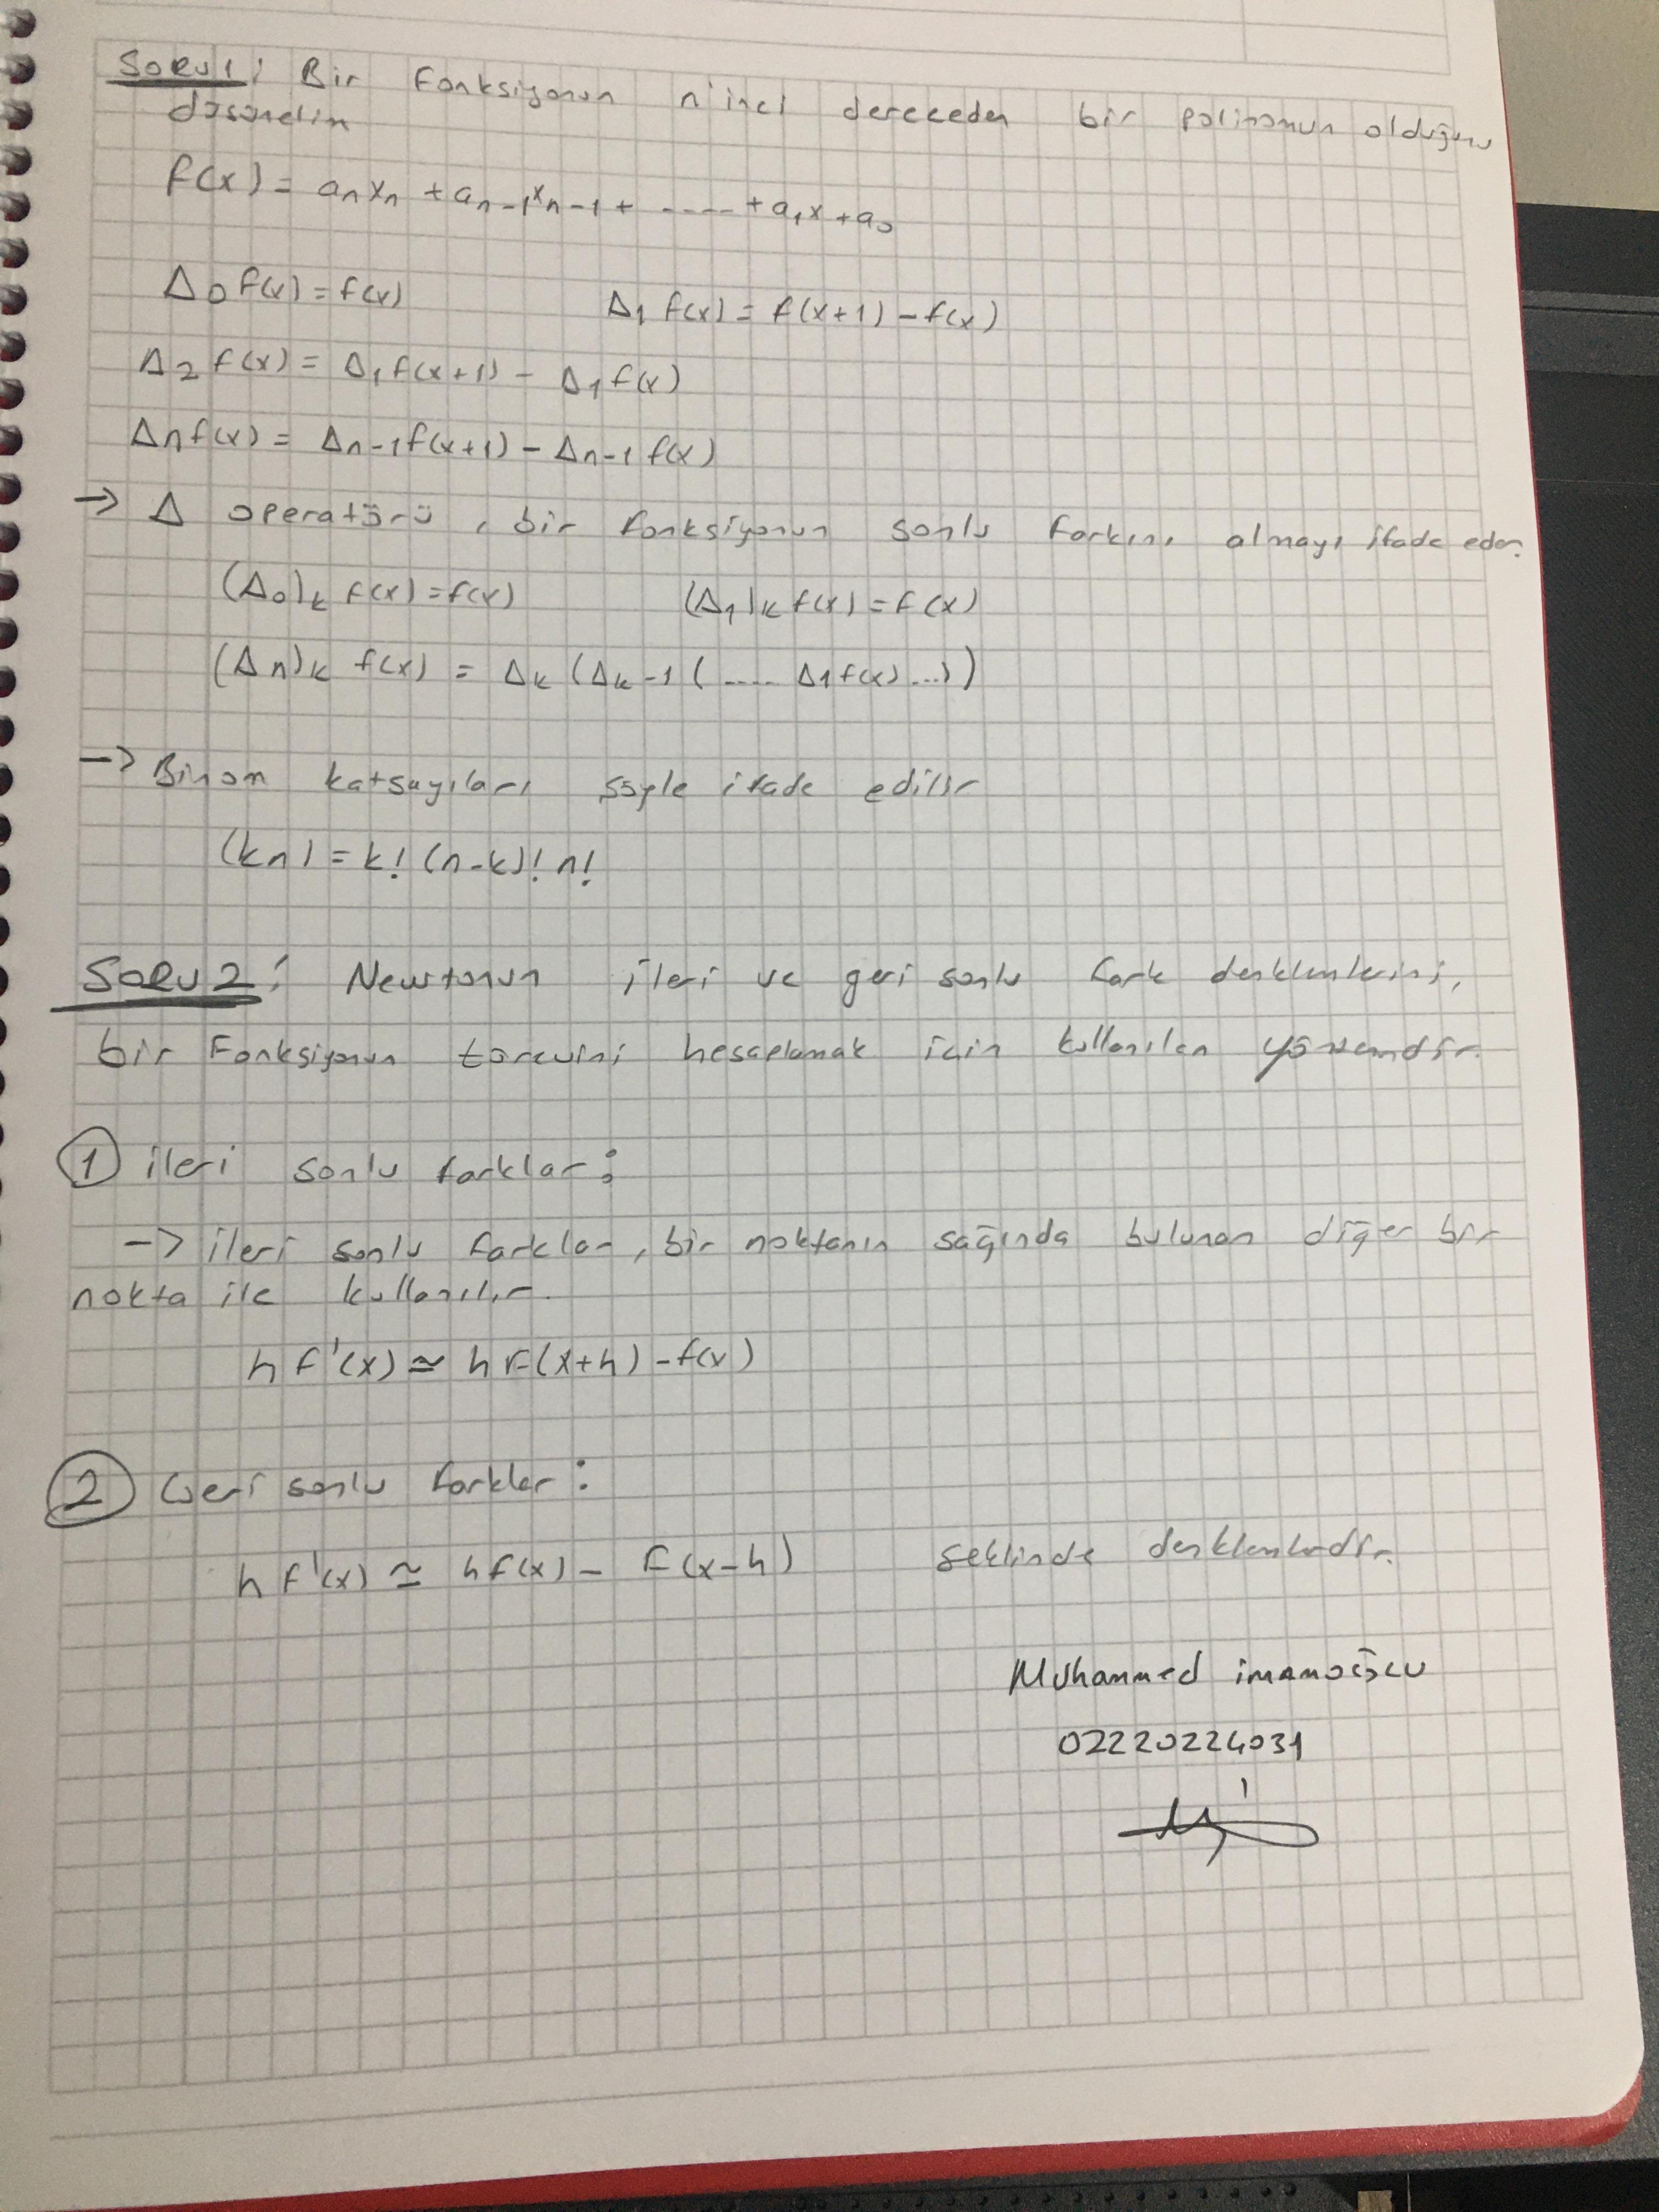 Soru 1: Bir Fonksiyonun n'inci dereceden bir polinomun olduğunu
düşünelim
f(x) = anxn + an-1xn-1 + ..... + a1x + a0
Δ0 f(x) = f(x) Δ1 f(x) = f(x+1) - f(x)
Δ2 f(x) = Δ1 f(x+1) - Δ1 f(x)
Δn f(x) = Δn-1 f(x+1) - Δn-1 f(x)
→ Δ operatörü, bir fonksiyonun sonlu farkını almayı ifade eder.
(Δ0)k f(x) = f(x) (Δ1)k f(x) = f(x)
(Δn)k f(x) = Δk (Δk-1 ( .... Δ1 f(x) ...))
→ Binom katsayıları şöyle ifade edilir
(kn) = k! (n-k)! n!
Soru 2: Newtonun ileri ve geri sonlu fark denklemlerini,
bir Fonksiyonun türevini hesaplamak için kullanılan yöntemdir.
1 ileri sonlu farklar:
→ ileri sonlu farklar, bir noktanın sağında bulunan diğer bir
nokta ile kullanılır.
h f'(x) ≃ h F(x+h) - f(x)
2 Geri sonlu farklar:
h f'(x) ≃ h f(x) - F(x-h) şeklinde denklemledir.
Muhammed imamoğlu
02220224031